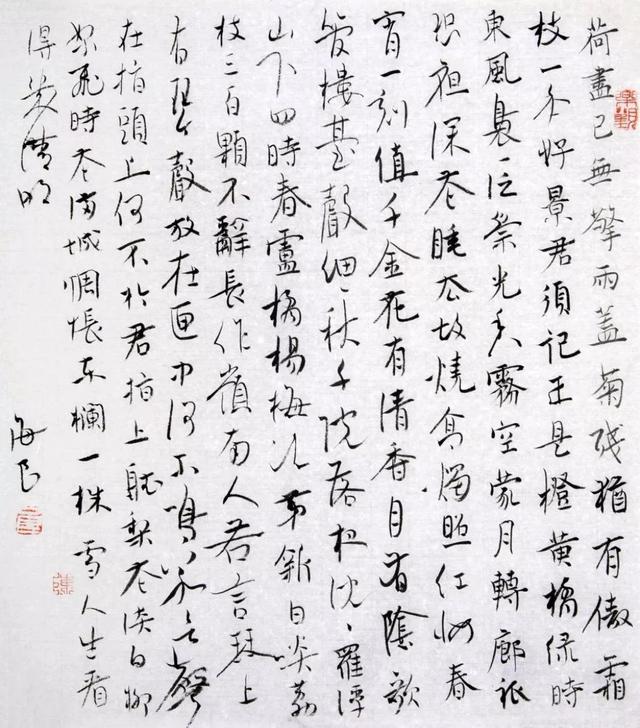 荷盡已無擎雨蓋菊殘猶有傲霜
枝一年好景君須記正是橙黄橘綠時
東風裊、泛崇光香霧空蒙月轉廊祇
恐夜深花睡去故燒高燭照紅妝春
宵一刻值千金花有清香月有陰歌
管樓臺聲細、秋千院落夜沈、羅浮
山下四時春盧橘楊梅次第新日啖荔
枝三百顆不辭長作嶺南人若言琴上
有琴聲放在匣中何不鳴若言聲
在指頭上何不於君指上聽梨花淡白柳
絮飛時花滿城惆悵東欄一株雪人生看
得幾清明
海